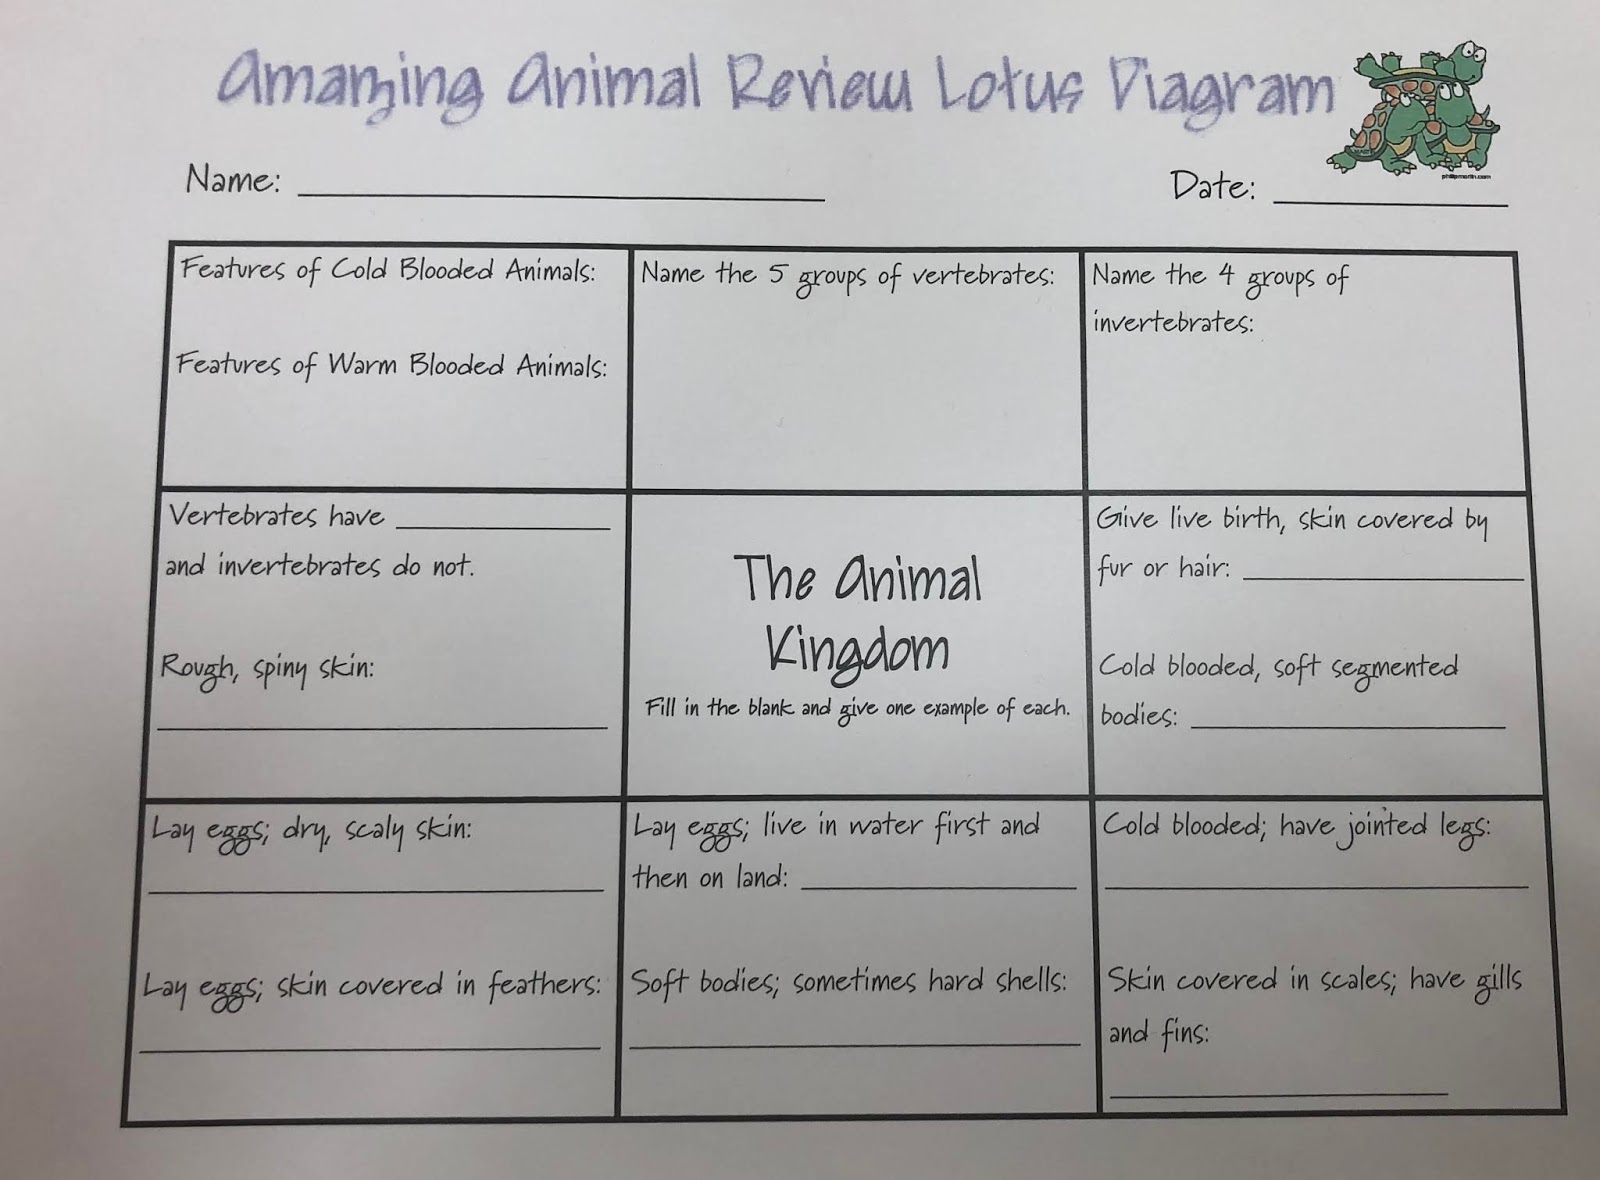 Amazing Animal Review Lotus Diagram
philipmartin.com
Name:
Date:
Features of Cold Blooded Animals:
Features of Warm Blooded Animals:
Name the 5 groups of vertebrates:
Name the 4 groups of
invertebrates:
Vertebrates have
and invertebrates do not.
Rough, spiny skin:
The Animal
Kingdom
Fill in the blank and give one example of each.
Give live birth, skin covered by
fur or hair:
Cold blooded, soft segmented
bodies:
Lay eggs; dry, scaly skin:
Lay eggs; skin covered in feathers:
Lay eggs; live in water first and
then on land:
Soft bodies; sometimes hard shells:
Cold blooded; have jointed legs:
Skin covered in scales; have gills
and fins: